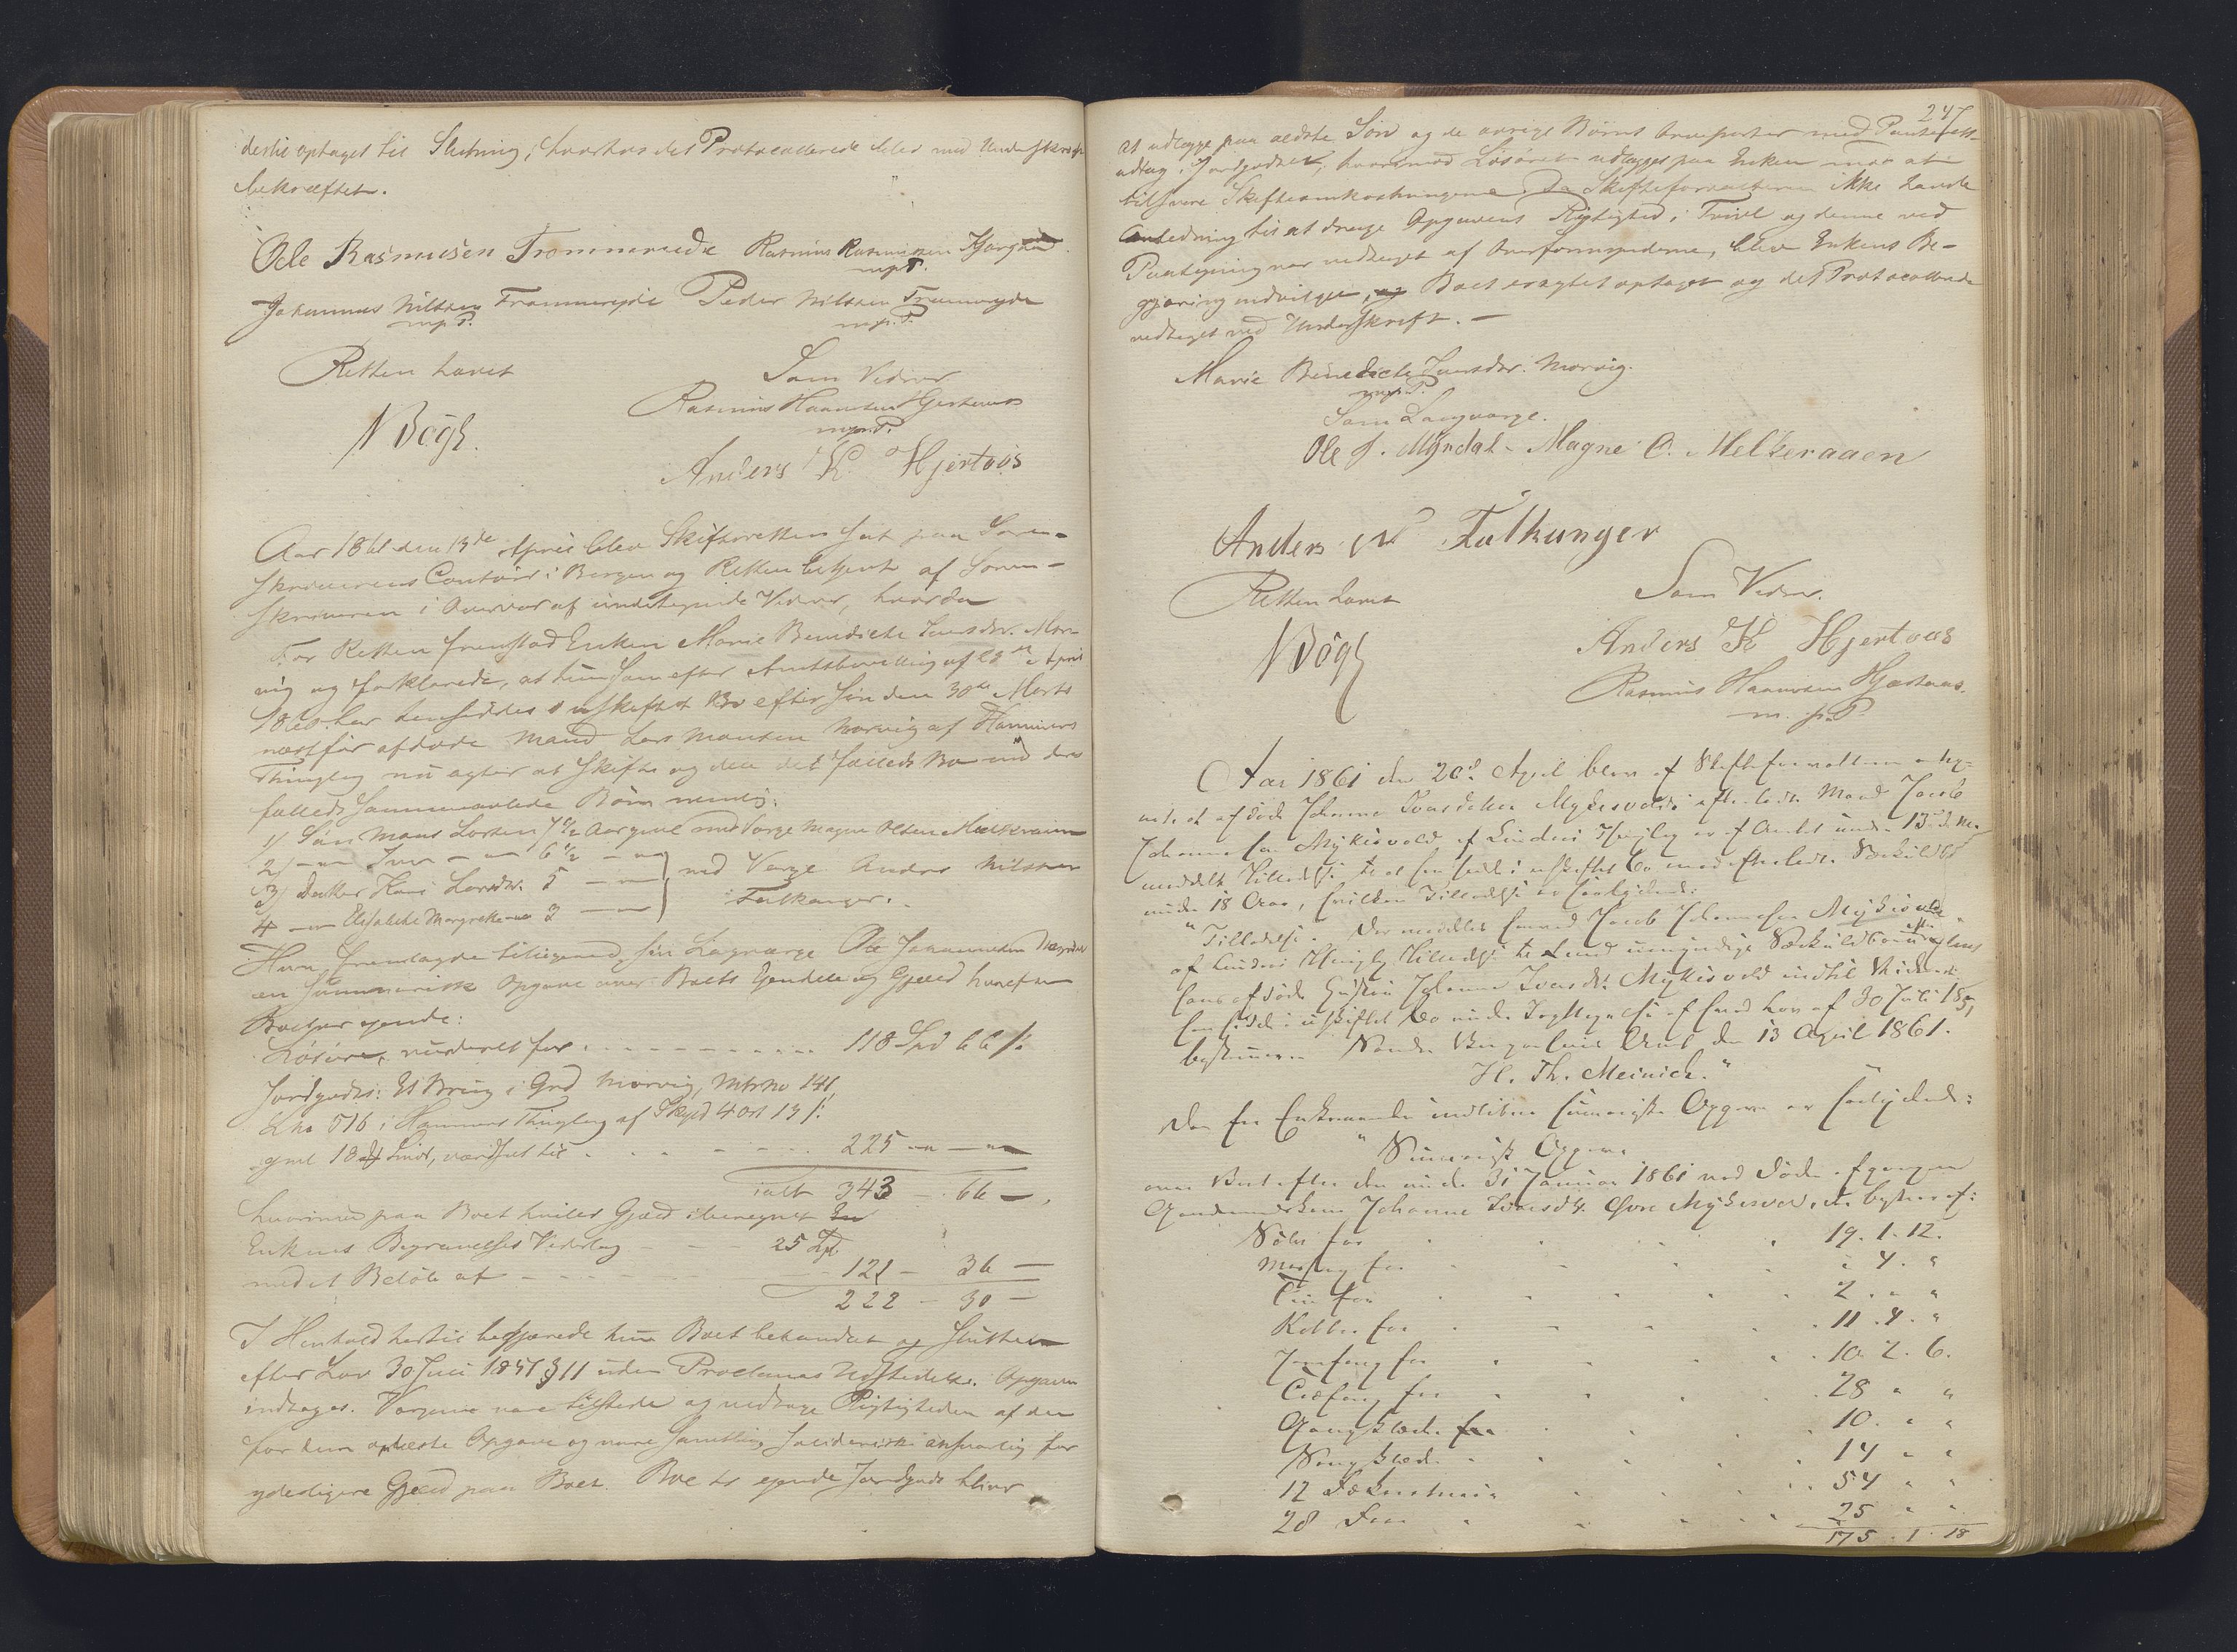 dertil optaget til Slutning, hvorhos det Protocollerede blev med Underskrift
bekræftet.
Ole Rasmusen Trommereide Rasmus Rasmussen
mpP.
Johannes Nilssen Trommereide Peder Nilssen Trommereide
mpP. mp.P.
Retten hævet Som Vidner
Rasmus Haansen Hjertaas
NBögh. mp.P.
Anders K Hjertoos
Aar 1861 den 13de April blev Skifteretten sat paa Soren-
skriverens Contoir i Bergen og Retten betjent af Soren-
skriveren i Overvær af undertegnede Vidner, hvorda
For Retten fremstod Enken Marie Benedicte Iversdr. Mor-
vig og forklarede, at hun som efter Amtsbevilling af April
har hensiddet i uskiftet Bo efter sin den 30te Marts
næstfør afdøde Mand Lars Monsen Morvig af Hammers
Thinglag nu agter at skifte og dele det fælleds Bo med deres
fælleds sammenavlede Børn nemlig:
1) Søn Mons Larsen 7½ Aar gml. med Verge Magne Olsen
2) — Iver — 6½ —
3) Datter Kari Larsdr. 5 — med Verge Anders Nilssen
4 — Elisabeth Margrethe 3 — Falkanger.
Hun fremlagde tilligemed sin Laugværge Ole Johannessen
en summarisk Opgave over Boets Eiendele og Gjæld hvorefter
Boet er eiende:
Løsøre, vurderet for . . . 118 Spd 66 ß
Jordgods: Et Brug i Grd Morvig, Mtr No 141,
L No 516 i Hammers Thinglag af Skyld 4 ort 13 ß
gml 18 Smør, værdsat til . . . 225 — —
ialt 343 — 66 —
hvorimod paa Boet hviler Gjæld iberegnet
Enkens Begravelses Vederlag — 25 Spd.
med et Beløb af — 121 — 36 —
222 — 30 —
I Henhold hertil begjærede hun Boet behandlet og sluttet
efter Lov 30 Juli 1851 § 11 uden Proclamas Udstedelse. Opgaven
indtages. Vergerne vare tilstede og vedtoge Rigtigheden af den
for dem oplæste Opgave og vare samtlige solidarisk ansvarlig for
yderligere Gjæld paa Boet. Boets eiende Jordgods bliver
247
at udlægge paa ældste Søn og de øvrige Børns Arveparter med Pantefest-
udlæg i Jordgodset, hvorimod Løsøret udlægges paa Enken mod at
tilsvare Skifteomkostningerne. Da Skifteforvalteren ikke havde
Anledning til at drage Opgavens Rigtighed i Tvivl og denne ved
Paategning var vedtaget af Overformynderne, blev Enkens Be-
gjæring indvilget, Boet eragtet optaget og det Protocollerede
vedtaget ved Underskrift. —
Marie Benedicte Iversdr. Morvig.
mp.P.
Som Laugværge.
Ole J. Myrdal - Magne O. Melkeraaen
Anders N Falkanger
Retten hævet Som Vidner.
NBögh Anders K Hjertaas
Rasmus Haansen Hjertaas.
m. p. P.
Aar 1861 den 20de April blev af Skifteforvalteren anteg-
net, at afdøde Johanne Iversdatter Mykisvolds efterladte Mand Jacob
Johannesen Mykisvold af Lindaas Thinglag er af Amtet under 13de d. M.
meddelt Tilladelse til at hensidde i uskiftet Bo med efterladte Særkuldbørn
under 18 Aar, hvilken Tilladelse er saalydende:
"Tilladelse. Der meddeles herved Jacob Johannesen Mykisvold
af Lindaas Thinglag Tilladelse til med umyndige Særkuldbørn efter
hans afdøde Hustru Johanne Iversdr. Mykisvold indtil Videre at
hensidde i uskiftet Bo under Iagttagelse af hvad Lov af 30 Juli 1851
bestemmer. Søndre Bergenhuus Amt den 13 April 1861.
H. Th. Meinich."
Den fra Enkemanden indløbne summariske Opgave er saalydende:
"Summarisk Opgave
over Boet efter den under 31 Januar 1861 ved Døden afgangne
Gaardmandskone Johanne Iversdtr. Øvre Mykisvold, der bestaar af:
Sølv for . . . 19. 1. 12.
Messing for . . . " 4. "
Tin for . . . 2 . " "
Kobber for . . . 11 . 4. "
Jernfang for . . . 10. 2. 6.
Træfang for . . . 28 " "
Gangklæder for . . . 10. " "
Sengklæder . . . 14 " "
12 . . . 54 " "
28 Faar . . . 25 " "
175 . 1 . 18